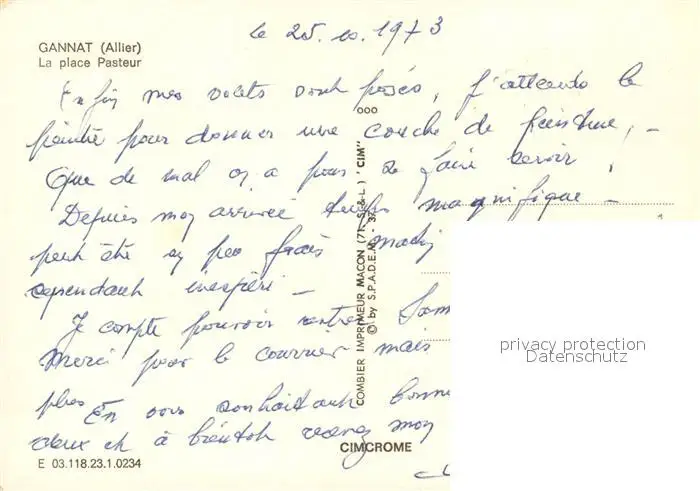 le 25.10.1973
GANNAT (Allier)
La place Pasteur
Enfin mes volets sont posés, j'attends le
peintre pour donner une couche de peinture, -
Que de mal on a pour se faire servir,
Depuis mon arrivée temps magnifique -
peut être un peu frais matin
cependant inespéré -
Je compte pouvoir rentrer Sam
Merci pour le courrier mais
plus En vous souhaitant bonne
deux et à bientôt recevez mon
ooo
COMBIER IMPRIMEUR MACON (71, S.-&-L.) "CIM"
© by S.P.A.D.E.M. - 37
CIMCROME
E 03.118.23.1.0234
privacy protection
Datenschutz